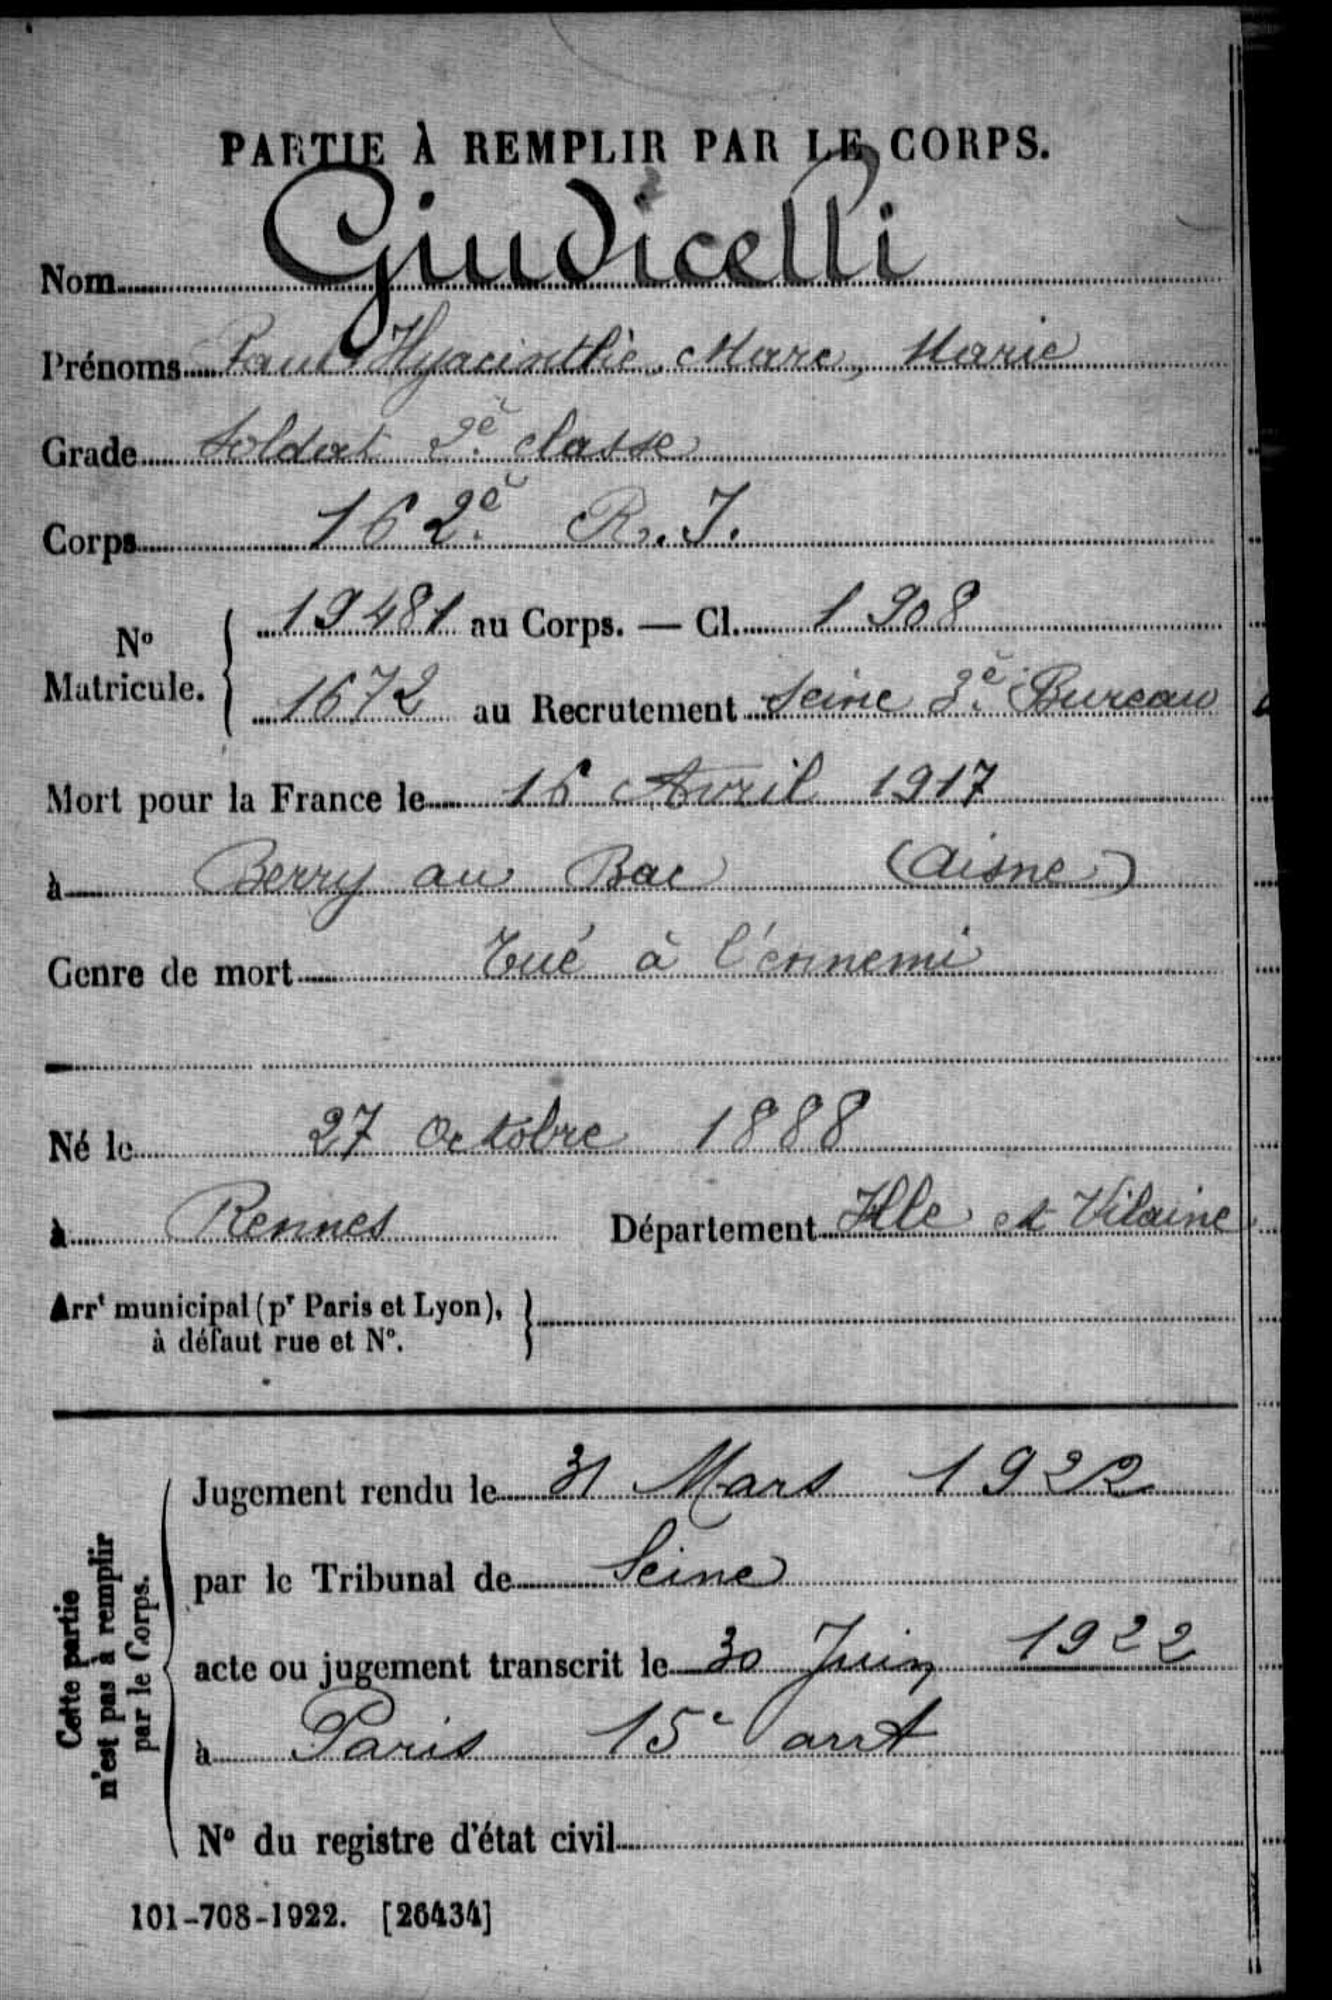 PARTIE À REMPLIR PAR LE CORPS.
Nom Giudicelli
Prénoms Paul Hyacinthe, Marc, Marie
Grade Soldat 2e classe
Corps 162e R. I.
No Matricule. { 19481 au Corps. — Cl. 1908
1672 au Recrutement Seine 3e Bureau
Mort pour la France le 16 Avril 1917
à Berry au Bac (Aisne)
Genre de mort Tué à l'ennemi
Né le 27 Octobre 1888
à Rennes Département Ille et Vilaine
Arrt municipal (pr Paris et Lyon), }
à défaut rue et No.
Cette partie
n'est pas à remplir
par le Corps.
Jugement rendu le 31 Mars 1922
par le Tribunal de Seine
acte ou jugement transcrit le 30 Juin 1922
à Paris 15e arrt
No du registre d'état civil
101-708-1922. [26434]